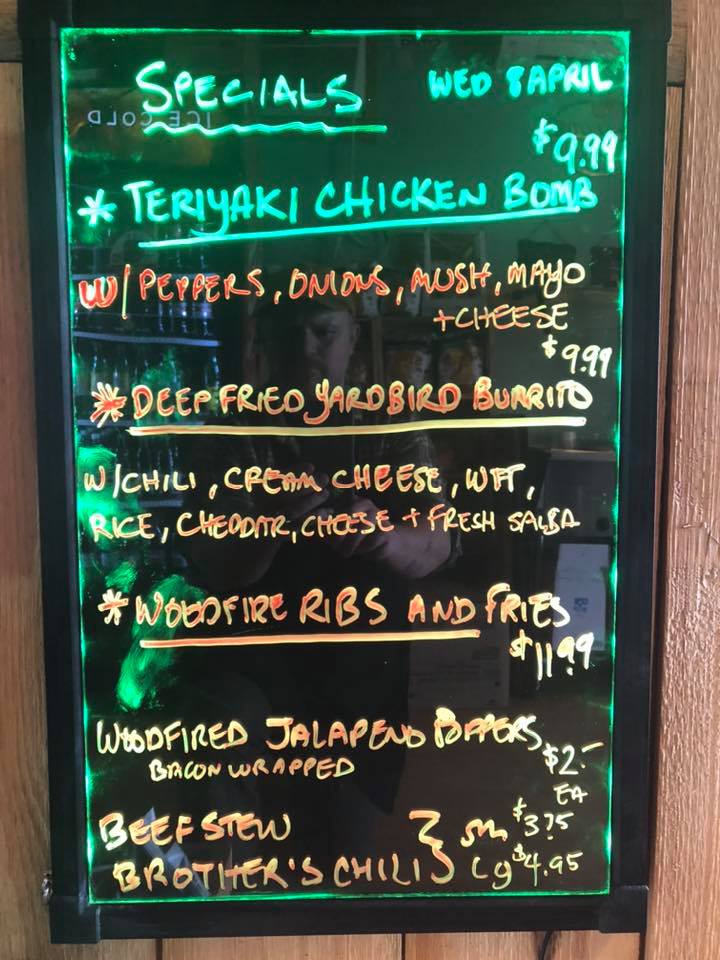 SPECIALS WED 8 APRIL
ICE COLD
$9.99
* TERIYAKI CHICKEN BOMB
W/ PEPPERS, ONIONS, MUSH, MAYO
+ CHEESE
$9.99
* DEEP FRIED YARDBIRD BURRITO
W/ CHILI, CREAM CHEESE,
RICE, CHEDDAR, CHEESE + FRESH SALSA
* WOODFIRE RIBS AND FRIES
$11.99
WOODFIRED JALAPENO POPPERS
BACON WRAPPED $2.-
EA
BEEF STEW } sm $3.75
BROTHER'S CHILI } Lg $4.95